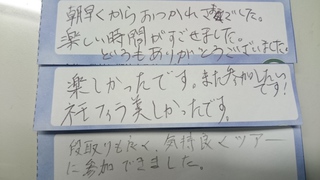 朝早くからおつかれ様でした。
楽しい時間がすごせました。
どうもありがとうございました。
楽しかったです。また参加したい
です!
ネモフィラ美しかったです。
段取りも良く、気持良くツアー
に参加できました。